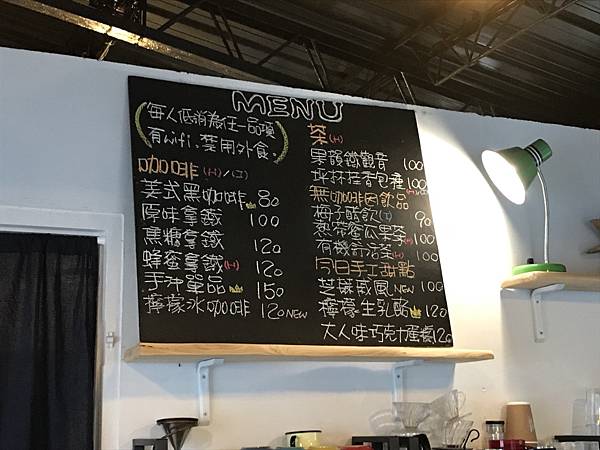 MENU
每人低消為任一品項
有wifi.禁用外食.
咖啡(H)/(I)
美式黑咖啡 80
原味拿鐵 100
焦糖拿鐵 120
蜂蜜拿鐵(H) 120
手沖單品 150
檸檬冰咖啡 120 NEW
茶(H)
果韻鐵觀音 100
坪林桂香包種 100(H)
無咖啡因飲品
梅子醋飲(I) 90
熱帶蜜瓜果茶(H) 100
有機舒活茶(H) 100
今日手工甜點
芝麻戚風 NEW 100
檸檬生乳酪 120
大人味巧克力蛋糕 120